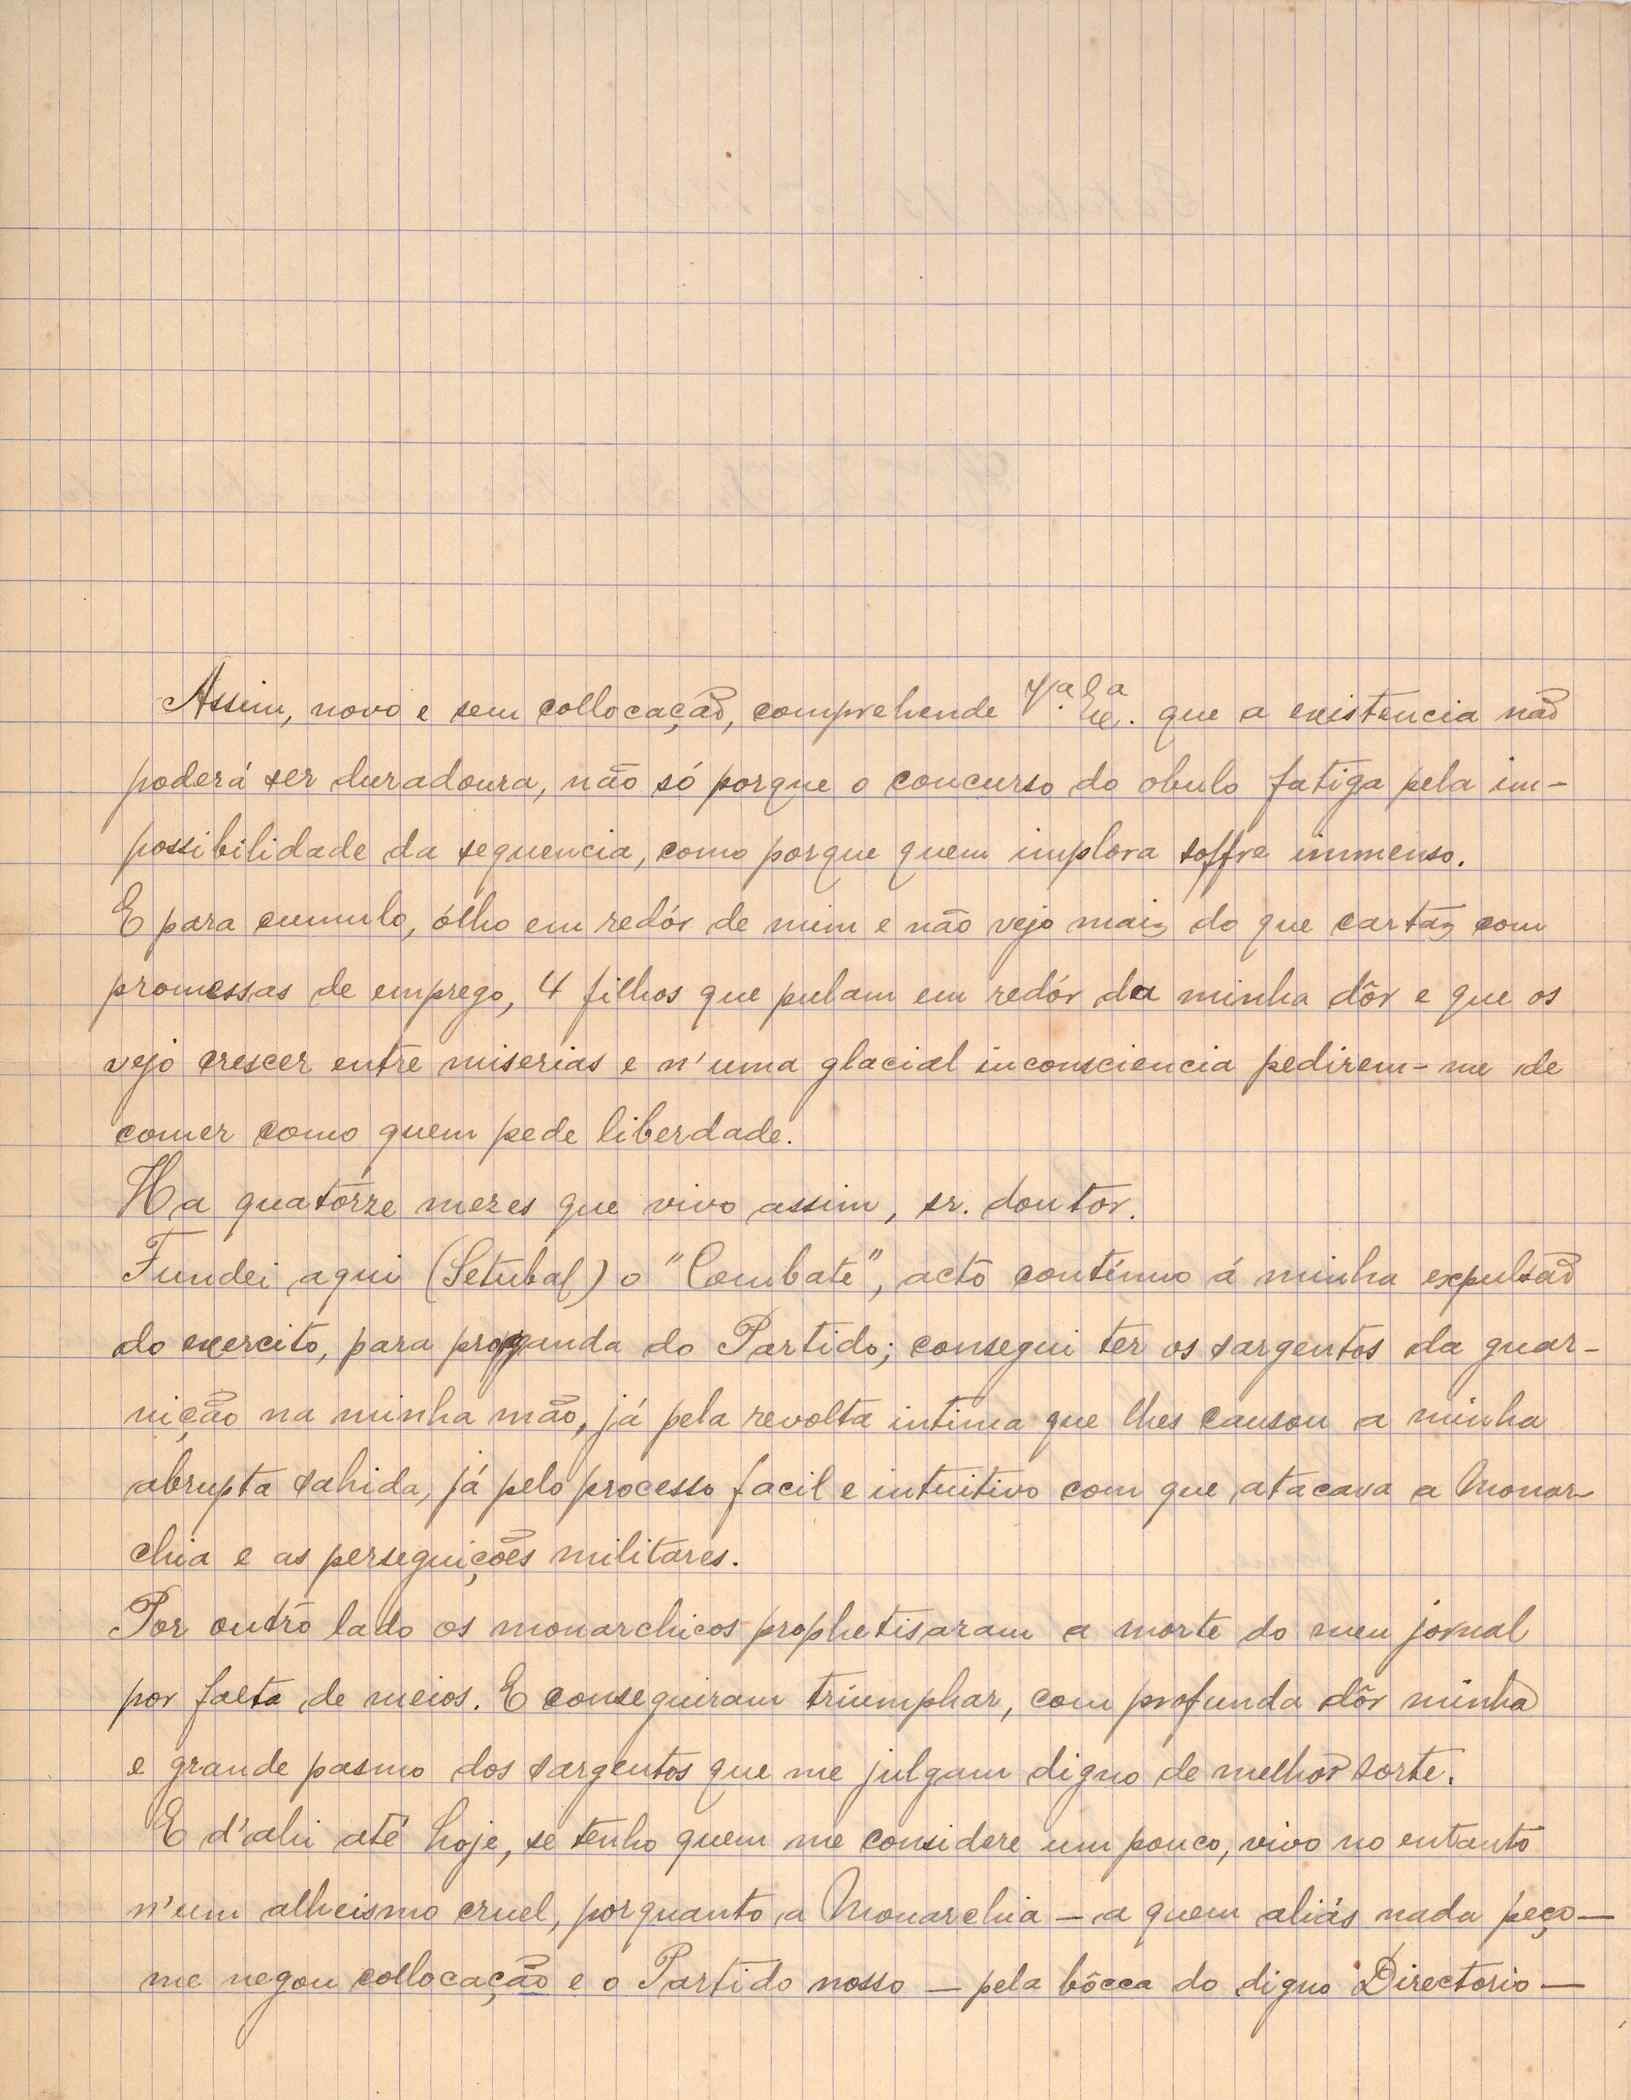 Assim, novo e sem collocação, comprehende V.ª Ex.ª que a existencia não
poderá ser duradoura, não só porque o concurso do obulo fatiga pela im-
possibilidade da sequencia, como porque quem implora soffre immenso.
E para cumulo, ólho em redór de mim e não vejo mais do que cartas com
promessas de emprego, 4 filhos que pulam em redór da minha dôr e que os
vejo crescer entre miserias e n'uma glacial inconsciencia pedirem-me de
comer como quem pede liberdade.
Ha quatórze mezes que vivo assim, sr. doutor.
Fundei aqui (Setubal) o "Combate", acto continuo á minha expulsão
do exercito, para propganda do Partido; consegui ter os sargentos da guar-
nição na minha mão, já pela revolta intima que lhes causou a minha
abrupta sahida, já pelo processo facil e intuitivo com que atacava a Monar-
chia e as perseguições militares.
Por outro lado os monarchicos prophetisaram a morte do meu jornal
por falta de meios. E conseguiram triumphar, com profunda dôr minha
e grande pasmo dos sargentos que me julgam digno de melhor sorte.
E d'ahi até hoje, se tenho quem me considere um pouco, vivo no entanto
n'um alheismo cruel, porquanto a Monarchia — a quem aliás nada peço —
me negou collocação e o Partido nosso — pela bôcca do digno Directorio —